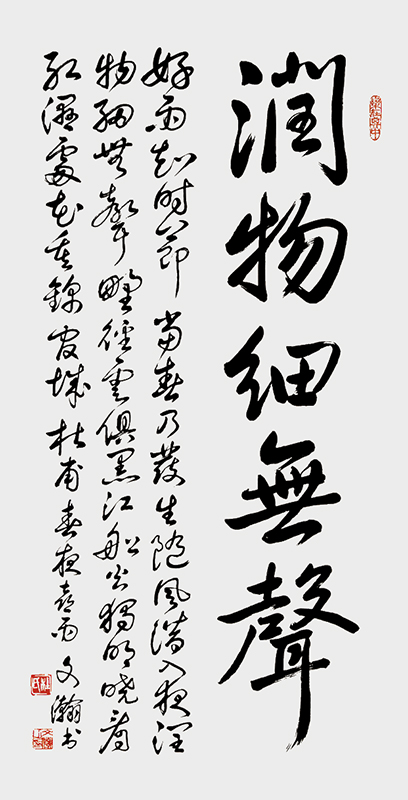 潤物細無聲
好雨知時節當春乃發生隨風潛入夜潤
物細無聲野徑雲俱黑江船火獨明曉看
紅濕處花重錦官城杜甫春夜喜雨文瀚书